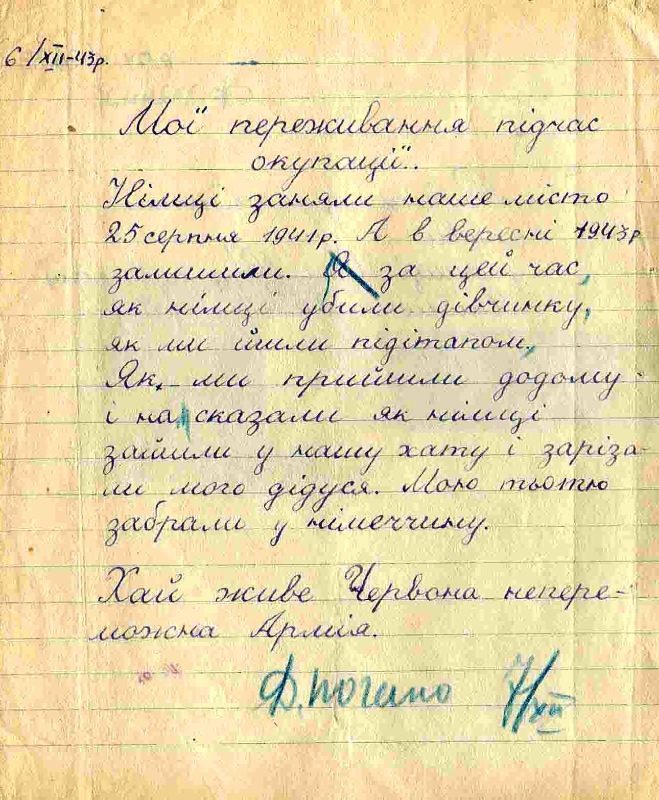 6/XII-43р.
Мої переживання підчас
окупації..
Німці заняли наше місто
25 серпня 1941р. А в вересні 1943р
залишили. Я за цей час,
як німці убили дівчинку,
як ми йшли підітапом,
Як ми прийшли додому
і на сказали як німці
зайшли у нашу хату і заріза-
ли мого дідуся. Мою тьотю
забрали у німеччину.
Хай живе Червона непере-
можна Армія.
погано 7/XII